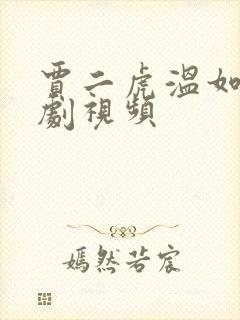 賈二虎溫如
劇視頻
嫣然若宸